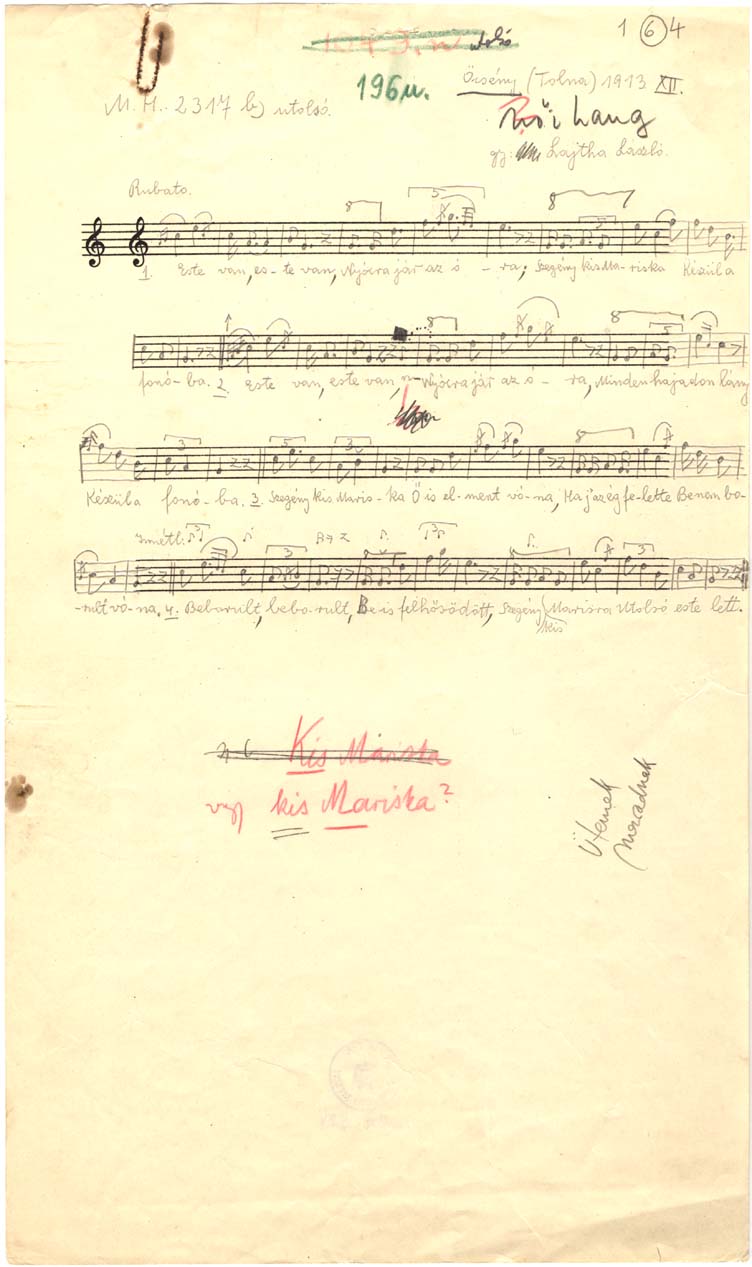 1 6 4
utolsó
196u.
Őcsény (Tolna) 1913 XII.
M. H.: 2317 b) utolsó.
női hang
gy: Lajtha László.
Rubato.
8 5 8 5
1. Este van, es-te van, Nyócra jár az ó - ra, Szegény kis Ma-riska Készül a
8 8 5
fonó-ba. 2. Este van, este van, Nyócra jár az ó - ra, Minden hajadon lány
3 5 3 8
Készül a fonó-ba. 3. Szegény kis Maris-ka Ő is el-ment vó-na, Ha j'az ég fe-lette Be nem bo-
Ismétl: 3
3 3
-rult vó-na. 4. Beborult, bebo-rult, Be is felhősödött, Szegény Marisra Utolsó este lett.
kis
Kis Mariska
vagy kis Mariska?
Ütemek
maradnak